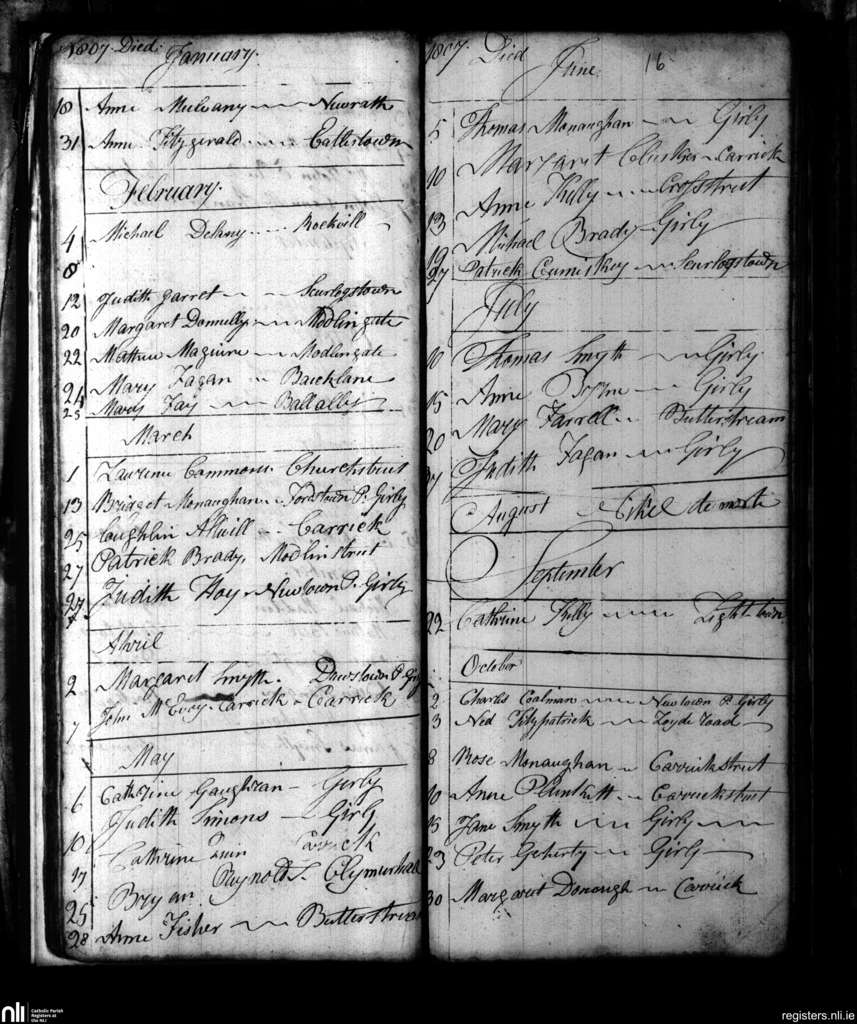 1807. Died.
January.
18 Anne Mulvany Newrath
31 Anne Fitzgerald
February.
4 Michael Delany Rockvill
8
12 Judith Garret Scurlogstown
20 Margaret Donnelly Modlingate
22 Mathew Maguire Modlingate
24 Mary Fagan Backlane
25 Mary Fay Ballallis
March
1 Laurence Churchstreet
13 Bridget Monaughan Fordstown P. Girly
25 Loughlin Carrick
27 Patrick Brady, Modlinstreet
27 Judith Hoy Newtown P. Girly
April
2 Margaret Smyth. P. Girly
7 John McEvoy Carrick Carrick
May
6 Cathrine Gaughran Girly
10 Judith Simons Girly
17 Cathrine Quin Carrick
25 Bryan Raynolds
28 Anne Fisher Butterstream
1807. Died June 16
5 Thomas Monaughan Girly
10 Margaret Clusker Carrick
13 Anne Kelly Crosstreet
19 Michael Brady Girly
27 Patrick Cumiskey Scurlogstown
July
10 Thomas Smyth Girly
15 Anne Byrne Girly
20 Mary Farrell Butterstream
Judith Fagan Girly
August Nihil de morte
September
22 Cathrine Kelly Lightown
October
2 Charles Coalman Newtown P. Girly
3 Ned Fitzpatrick Loyde road
8 Rose Monaughan Carrickstreet
10 Anne Plunkett Carrickstreet
15 Jane Smyth Girly
23 Peter Geherty Girly
30 Margaret Donough Carrick
nli Catholic Parish
Registers at
the NLI
registers.nli.ie